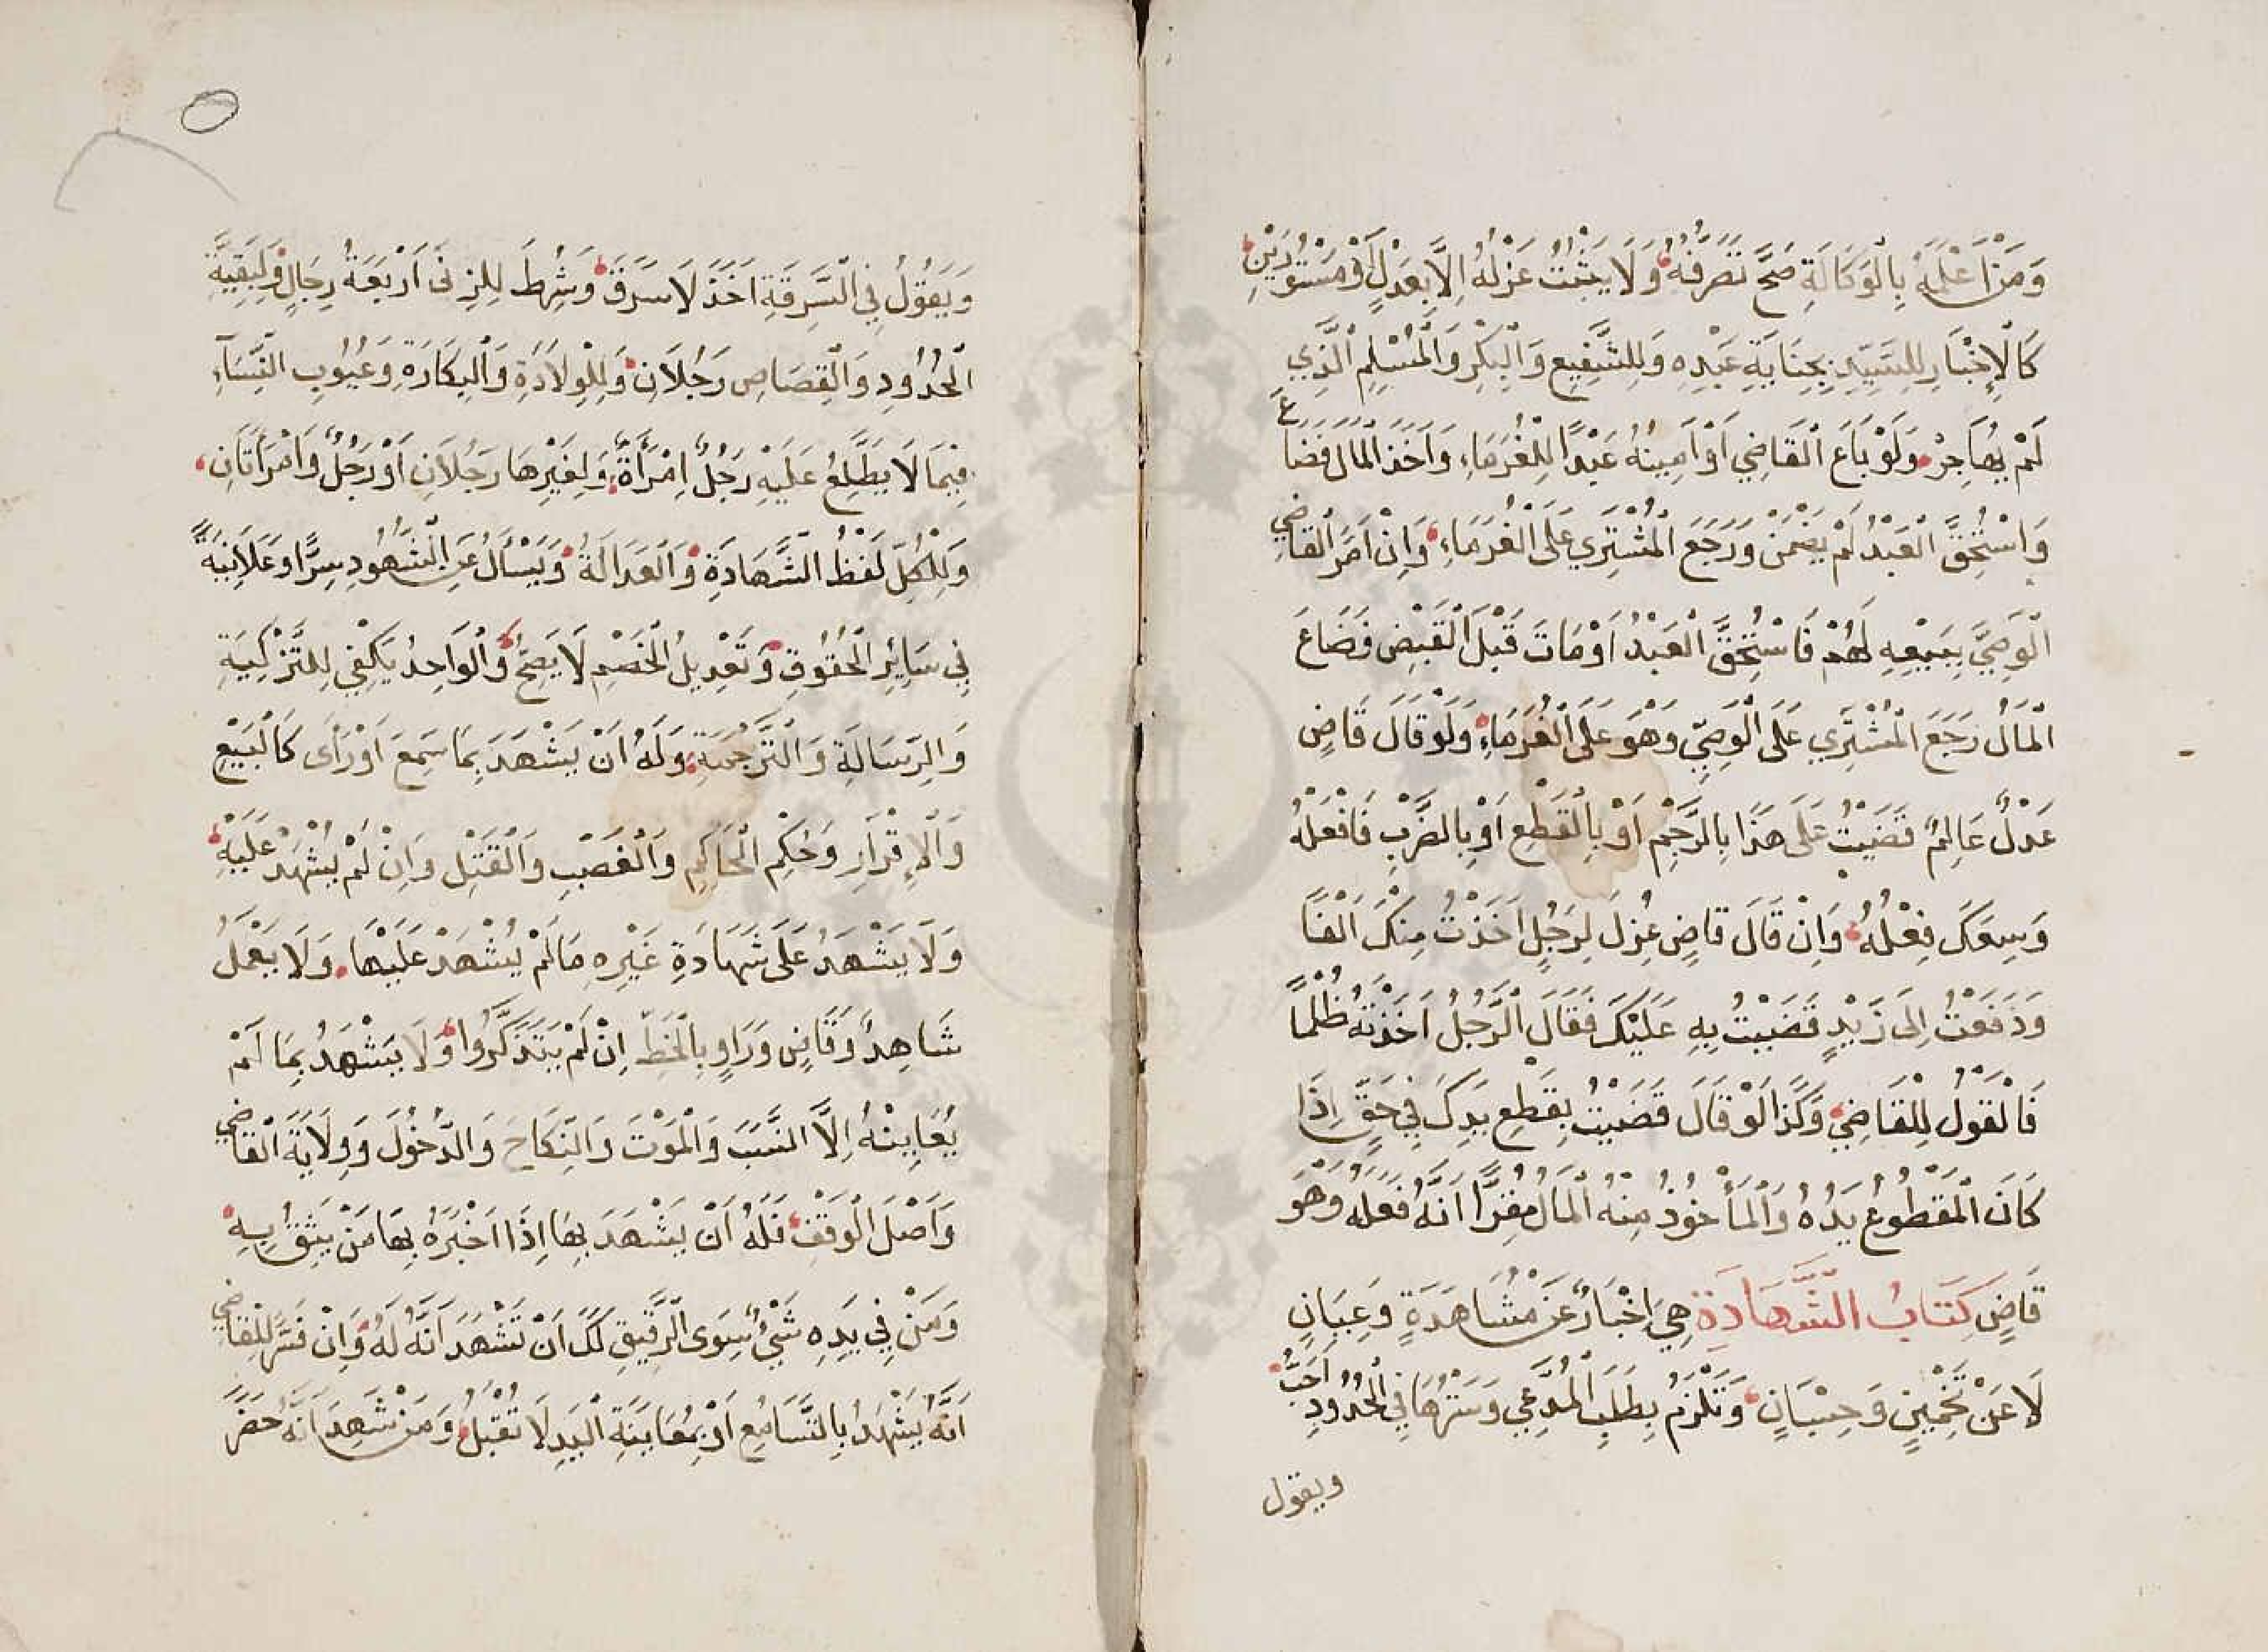 وَمَنْ اَعْلَمَهُ بِالْوَكَالَةِ صَحَّ تَصَرُّفُهُ وَلَا يَثْبُتُ عَزْلُهُ اِلَّا بِعَدْلٍ اَوْ مَسْتُورَيْنِ
كَالْاِخْبَارِ لِلسَّيِّدِ بِجِنَايَةِ عَبْدِهِ وَلِلشَّفِيعِ وَالْبِكْرِ وَالْمُسْلِمِ الَّذِي
لَمْ يُهَاجِرْ وَلَوْ بَاعَ الْقَاضِي اَوْ اَمِينُهُ عَبْدًا لِلْغُرَمَاءِ وَاَخَذَ الْمَالَ فَضَاعَ
وَاسْتُحِقَّ الْعَبْدُ لَمْ يَضْمَنْ وَرَجَعَ الْمُشْتَرِي عَلَى الْغُرَمَاءِ وَاِنْ اَمَرَ الْقَاضِي
الْوَصِيَّ بِبَيْعِهِ لَهُمْ فَاسْتُحِقَّ الْعَبْدُ اَوْ مَاتَ قَبْلَ الْقَبْضِ فَضَاعَ
الْمَالُ رَجَعَ الْمُشْتَرِي عَلَى الْوَصِيِّ وَهُوَ عَلَى الْغُرَمَاءِ وَلَوْ قَالَ قَاضٍ
عَدْلٌ عَالِمٌ قَضَيْتُ عَلَى هَذَا بِالرَّجْمِ اَوْ بِالْقَطْعِ اَوْ بِالضَّرْبِ فَافْعَلْهُ
وَسِعَكَ فِعْلُهُ وَاِنْ قَالَ قَاضٍ عُزِلَ لِرَجُلٍ اَخَذْتُ مِنْكَ اَلْفًا
وَدَفَعْتُ اِلَى زَيْدٍ قَضَيْتُ بِهِ عَلَيْكَ فَقَالَ الرَّجُلُ اَخَذْتَهُ ظُلْمًا
فَالْقَوْلُ لِلْقَاضِي وَكَذَا لَوْ قَالَ قَضَيْتُ بِقَطْعِ يَدِكَ فِي حَقٍّ اِذَا
كَانَ الْمَقْطُوعُ يَدُهُ وَالْمَأْخُوذُ مِنْهُ الْمَالُ مُقِرًّا اَنَّهُ فَعَلَهُ وَهُوَ
قَاضٍ كِتَابُ الشَّهَادَةِ هِيَ اِخْبَارٌ عَنْ مُشَاهَدَةٍ وَعِيَانٍ
لَا عَنْ تَخْمِينٍ وَحِسْبَانٍ وَتَلْزَمُ بِطَلَبِ الْمُدَّعِي وَسَتْرُهَا فِي الْحُدُودِ اَحَبُّ
ويقول
وَيَقُولُ فِي السَّرِقَةِ اَخَذَ لَا سَرَقَ وَشُرِطَ لِلزِنَى اَرْبَعَةُ رِجَالٍ وَلِبَقِيَّةِ
الْحُدُودِ وَالْقِصَاصِ رَجُلَانِ وَلِلْوِلَادَةِ وَالْبِكَارَةِ وَعُيُوبِ النِّسَآءِ
فِيمَا لَا يَطَّلِعُ عَلَيْهِ رَجُلٌ اِمْرَأَةٌ وَلِغَيْرِهَا رَجُلَانِ اَوْ رَجُلٌ وَامْرَأَتَانِ
وَلِلْكُلِّ لَفْظُ الشَّهَادَةِ وَالْعَدَالَةُ وَيَسْأَلُ عَنِ الشُّهُودِ سِرًّا وَعَلَانِيَةً
فِي سَائِرِ الْحُقُوقِ وَتَعْدِيلُ الْخَصْمِ لَا يَصِحُّ وَالْوَاحِدُ يَكْفِي لِلتَّزْكِيَةِ
وَالرِّسَالَةِ وَالتَّرْجُمَةِ وَلَهُ اَنْ يَشْهَدَ بِمَا سَمِعَ اَوْ رَأَى كَالْبَيْعِ
وَالْاِقْرَارِ وَحُكْمِ الْحَاكِمِ وَالْغَصْبِ وَالْقَتْلِ وَاِنْ لَمْ يُشْهَدْ عَلَيْهِ
وَلَا يَشْهَدُ عَلَى شَهَادَةِ غَيْرِهِ مَا لَمْ يُشْهَدْ عَلَيْهَا وَلَا يَعْمَلُ
شَاهِدٌ وَقَاضٍ وَرَاوٍ بِالْخَطِّ اِنْ لَمْ يَتَذَكَّرُوا وَلَا يَشْهَدُ بِمَا لَمْ
يُعَايِنْهُ اِلَّا النَّسَبَ وَالْمَوْتَ وَالنِّكَاحَ وَالدُّخُولَ وَوِلَايَةَ الْقَاضِي
وَاَصْلَ الْوَقْفِ فَلَهُ اَنْ يَشْهَدَ بِهَا اِذَا اَخْبَرَهُ بِهَا مَنْ يَثِقُ بِهِ
وَمَنْ فِي يَدِهِ شَيْءٌ سِوَى الرَّقِيقِ لَكَ اَنْ تَشْهَدَ اَنَّهُ لَهُ وَاِنْ فَسَّرَ لِلْقَاضِي
اَنَّهُ يَشْهَدُ بِالتَّسَامُعِ اَوْ بِمُعَايَنَةِ الْيَدِ لَا تُقْبَلُ وَمَنْ شَهِدَ اَنَّهُ حَضَرَ